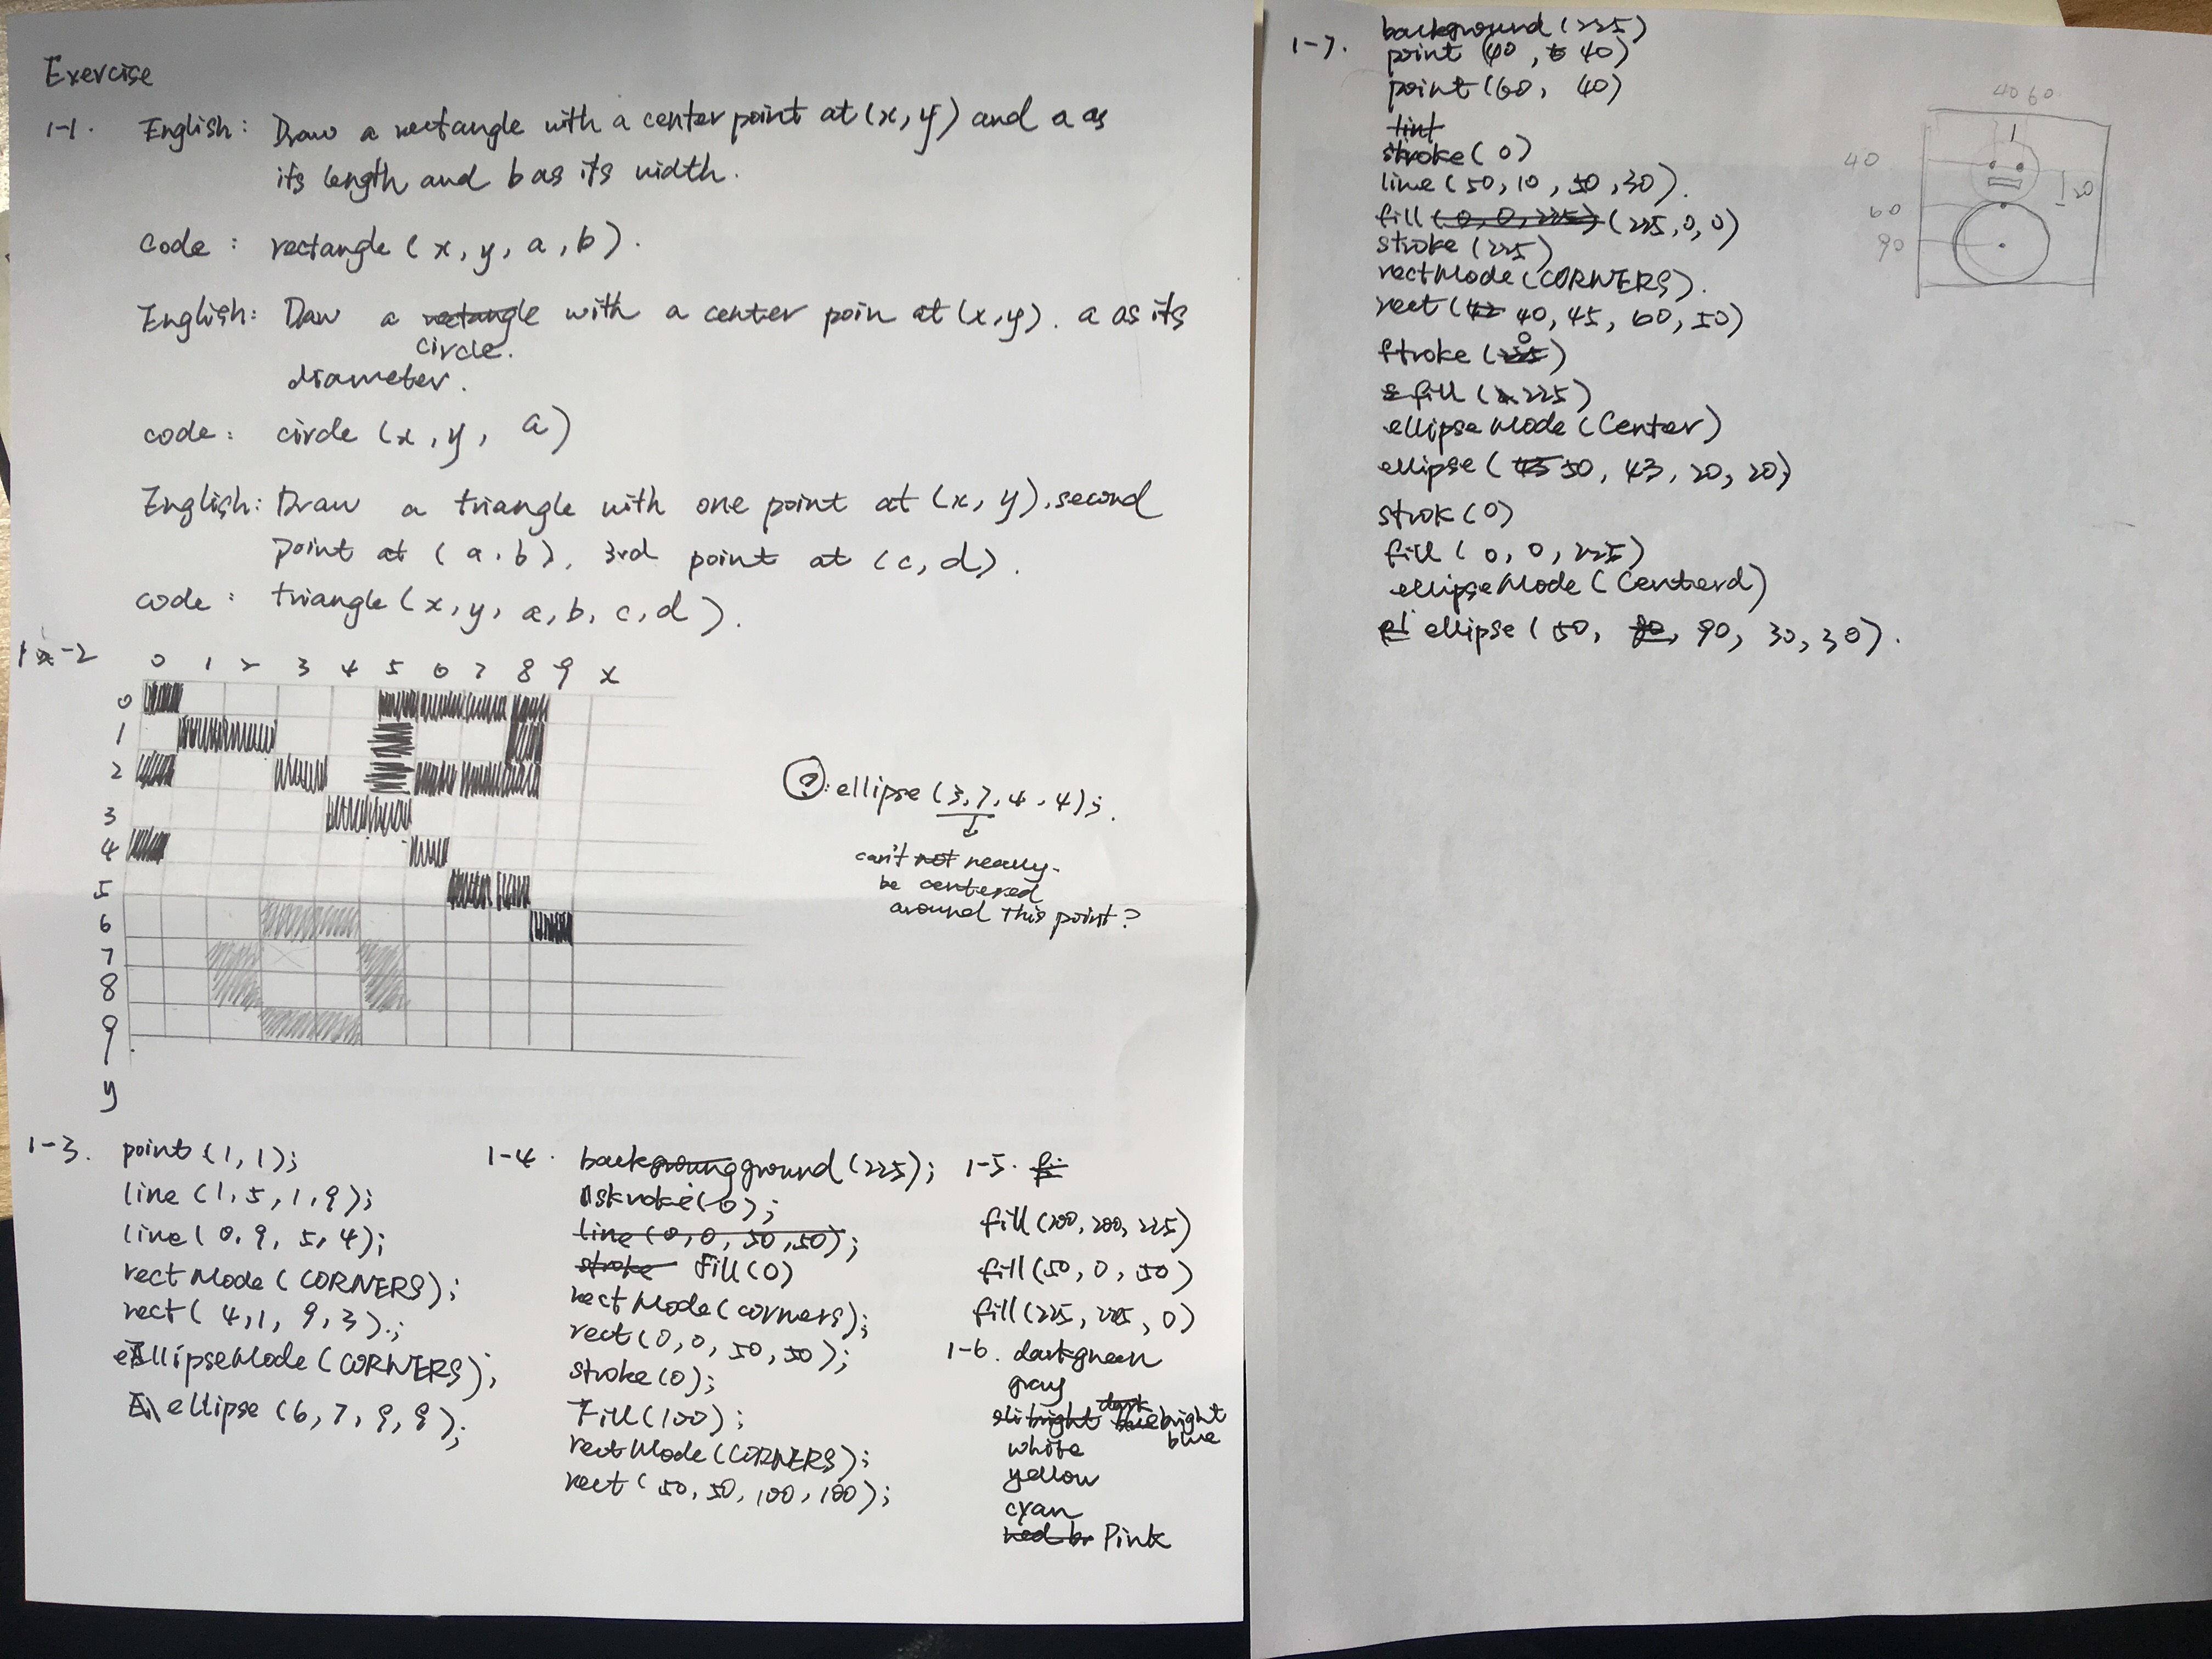 Exercise
1-1. English: Draw a rectangle with a center point at (x, y) and a as
its length and b as its width.
code: rectangle (x, y, a, b).
English: Daw a rectangle with a center poin at (x, y). a as its
circle.
diameter.
code: circle (x, y, a)
English: Draw a triangle with one point at (x, y), second
point at (a, b), 3rd point at (c, d).
code: triangle (x, y, a, b, c, d).
1-2
0 1 2 3 4 5 6 7 8 9 x
0
1
2
3
4
5
6
7
8
9
y
?: ellipse (3, 7, 4, 4);
can't not really
be centered
around this point?
1-3. point (1, 1);
line (1, 5, 1, 9);
line (0, 9, 5, 4);
rectMode (CORNERS);
rect (4, 1, 9, 3);
ellipseMode (CORNERS);
ellipse (6, 7, 9, 9);
1-4. backgroungground (225);
stroke (0);
line (0, 0, 50, 50);
stroke Fill (0)
rectMode (corners);
rect (0, 0, 50, 50);
stroke (0);
Fill (100);
rectMode (CORNERS);
rect (50, 50, 100, 100);
1-5. fi
fill (200, 200, 225)
fill (50, 0, 50)
fill (225, 225, 0)
1-6. darkgreen
gray
bright dark blue bright
blue
white
yellow
cyan
red Pink
1-7. background (225)
point (40, 40)
point (60, 40)
tint
stroke (0)
line (50, 10, 50, 30).
fill (0, 0, 225) (225, 0, 0)
stroke (225)
rectMode (CORNERS).
rect (42 40, 45, 60, 50)
stroke (225) 0
fill (225)
ellipseMode (Center)
ellipse (45 50, 43, 20, 20)
strok (0)
fill (0, 0, 225)
ellipseMode (Centerd)
el ellipse (50, 80, 90, 30, 30).
40 60
40
20
60
90